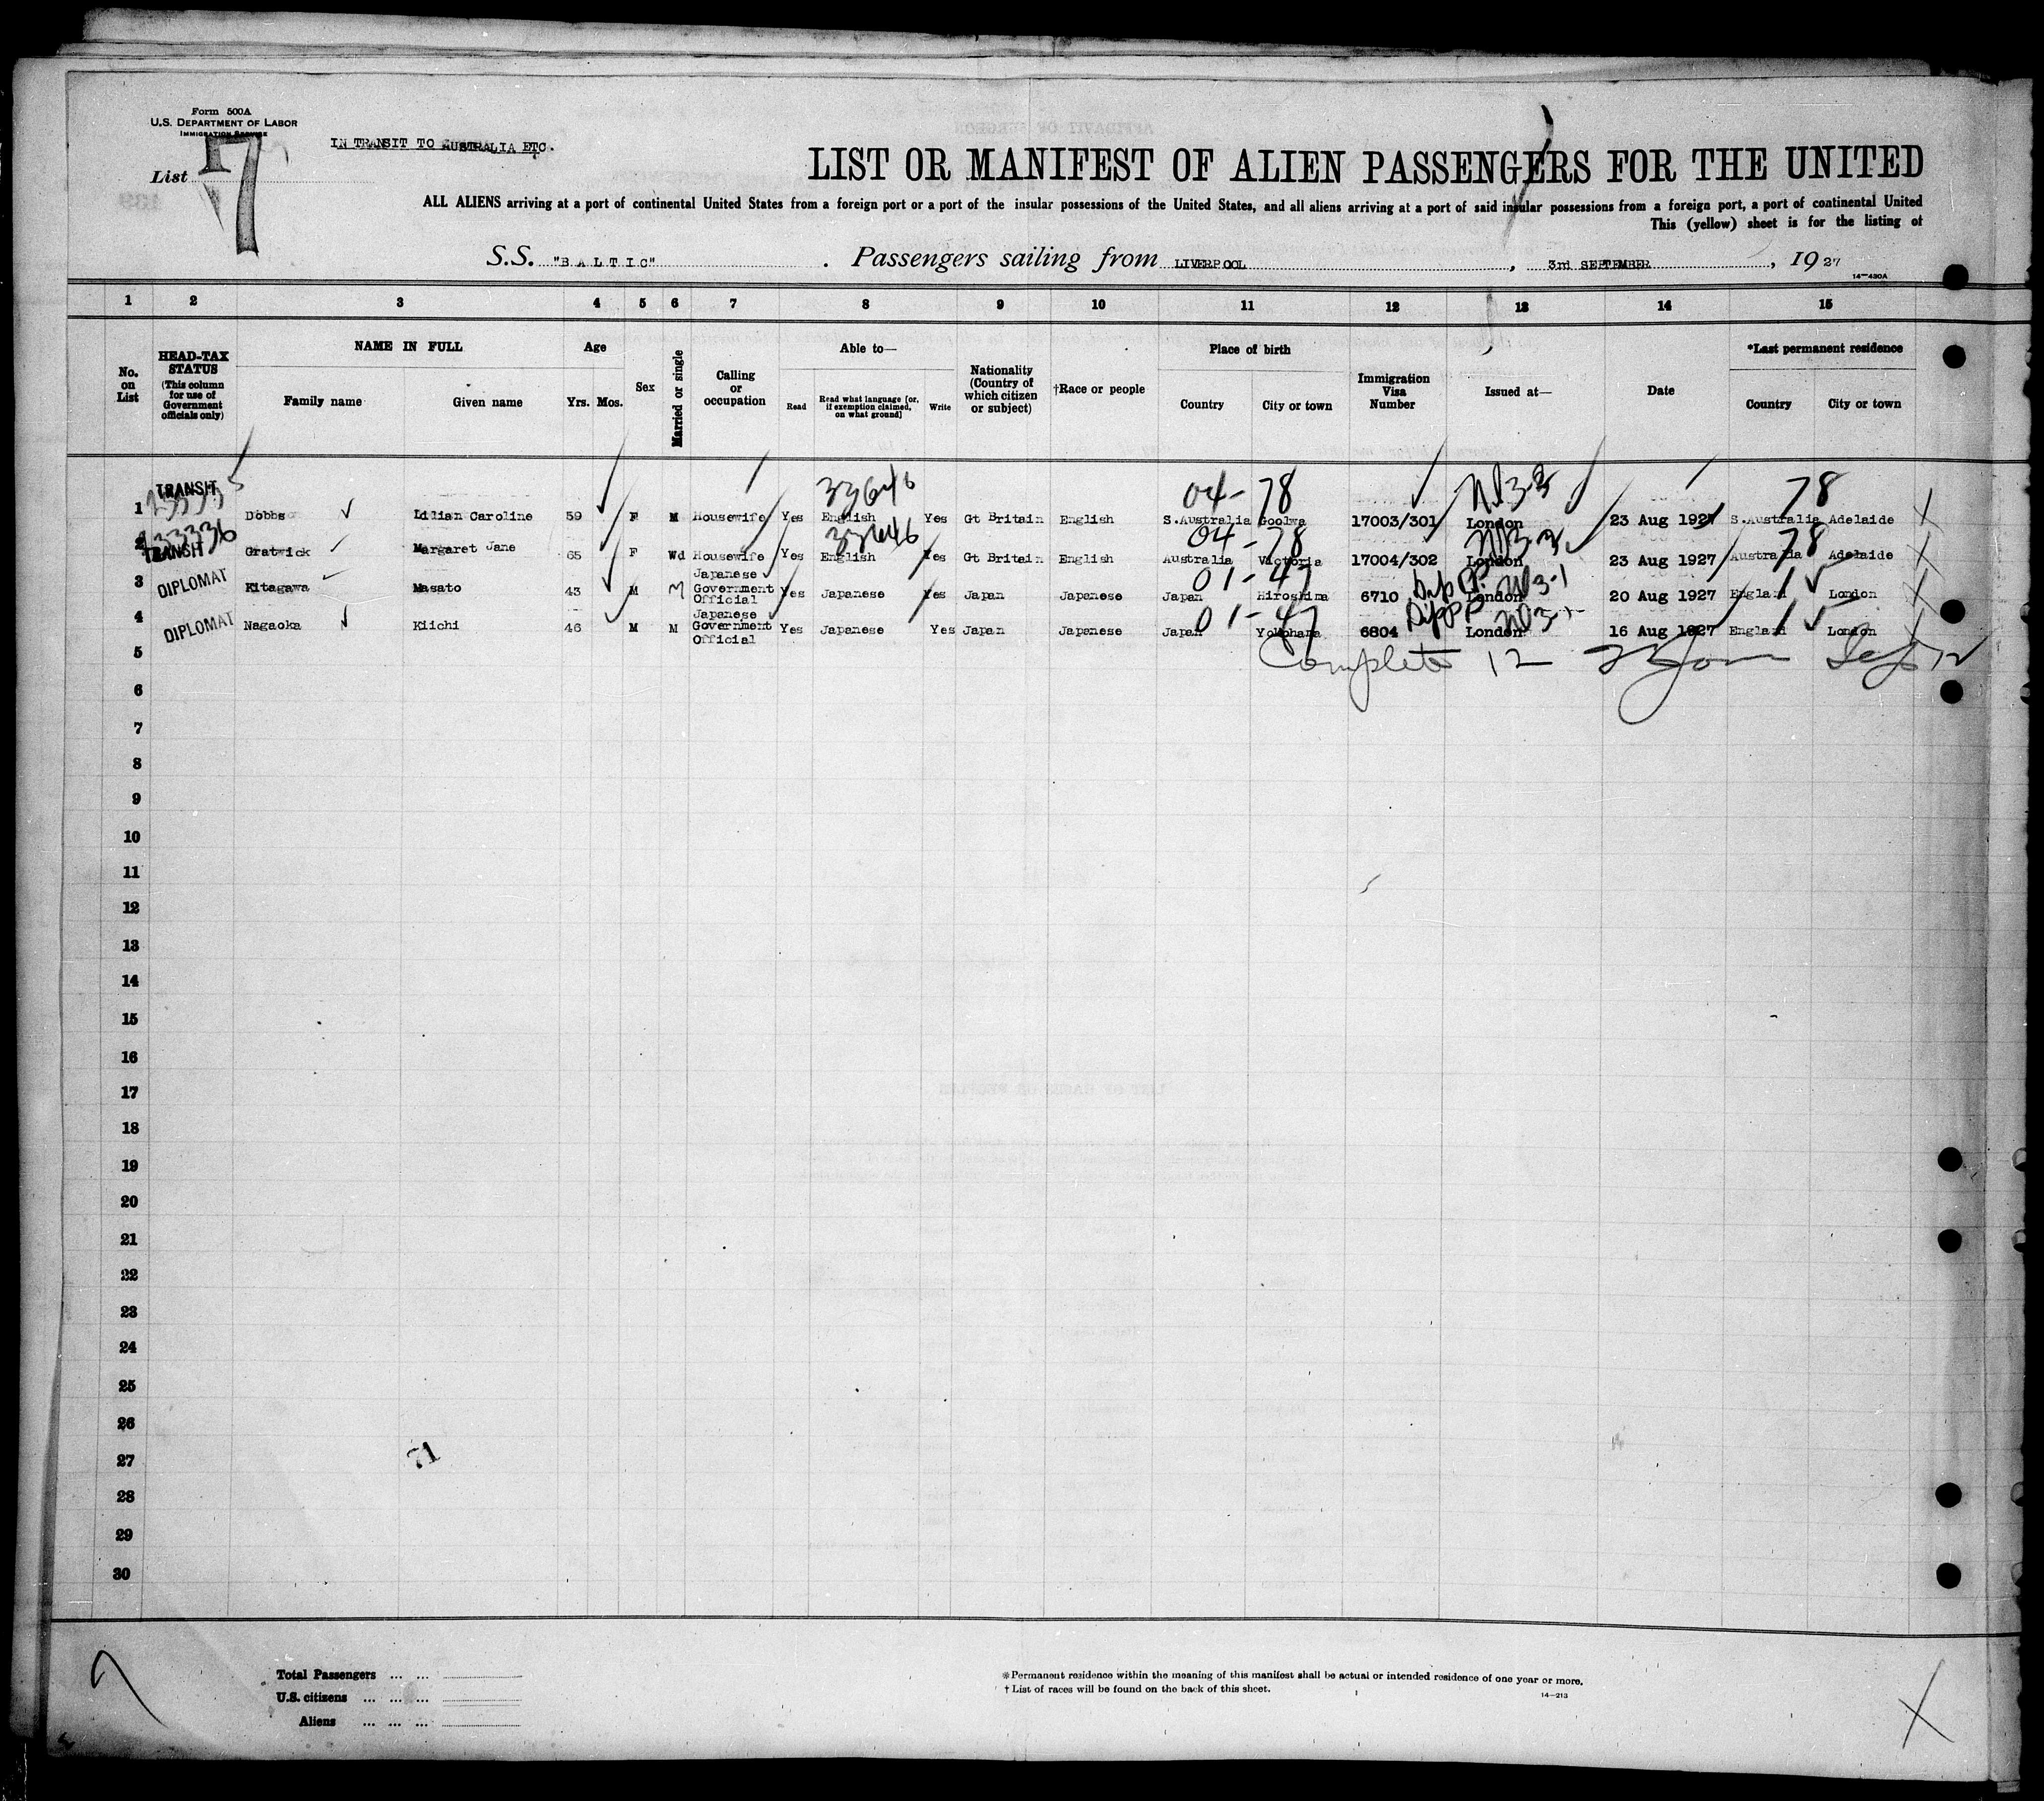 Form 500A
U.S. DEPARTMENT OF LABOR
IMMIGRATION SERVICE
IN TRANSIT TO AUSTRALIA ETC.
List 7
LIST OR MANIFEST OF ALIEN PASSENGERS FOR THE UNITED
ALL ALIENS arriving at a port of continental United States from a foreign port or a port of the insular possessions of the United States, and all aliens arriving at a port of said insular possessions from a foreign port, a port of continental United
This (yellow) sheet is for the listing of
S.S. "BALTIC". Passengers sailing from LIVERPOOL, 3rd SEPTEMBER, 1927
14—430A
1 2 3 4 5 6 7 8 9 10 11 12 13 14 15
No. on List
HEAD-TAX STATUS (This column for use of Government officials only)
NAME IN FULL
Family name Given name
Age
Yrs. Mos.
Sex
Married or single
Calling or occupation
Able to—
Read Read what language [or, if exemption claimed, on what ground] Write
Nationality (Country of which citizen or subject)
†Race or people
Place of birth
Country City or town
Immigration Visa Number
Issued at—
Date
*Last permanent residence
Country City or town
TRANSIT 33646 04-78 NV33 78
1 Dobbs Lilian Caroline 59 F M Housewife Yes English Yes Gt Britain English S.Australia Goolwa 17003/301 London 23 Aug 1927 S.Australia Adelaide
133336 33646 04-78 NV33 78
2 TRANSIT Gratwick Margaret Jane 65 F Wd Housewife Yes English Yes Gt Britain English Australia Victoria 17004/302 London 23 Aug 1927 Australia Adelaide
01-47 Dip PP NV3-1 1
3 DIPLOMAT Kitagawa Masato 43 M M Japanese Government Official Yes Japanese Yes Japan Japanese Japan Hiroshima 6710 London 20 Aug 1927 England London
01-47 Dip PP NV3-1 1
4 DIPLOMAT Nagaoka Kiichi 46 M M Japanese Government Official Yes Japanese Yes Japan Japanese Japan Yokohama 6804 London 16 Aug 1927 England London
5 Complete 12 Sep 12
6
7
8
9
10
11
12
13
14
15
16
17
18
19
20
21
22
23
24
25
26
71
27
28
29
30
Total Passengers ... ...
U.S. citizens ... ... ...
Aliens ... ... ...
*Permanent residence within the meaning of this manifest shall be actual or intended residence of one year or more.
† List of races will be found on the back of this sheet.
14—213